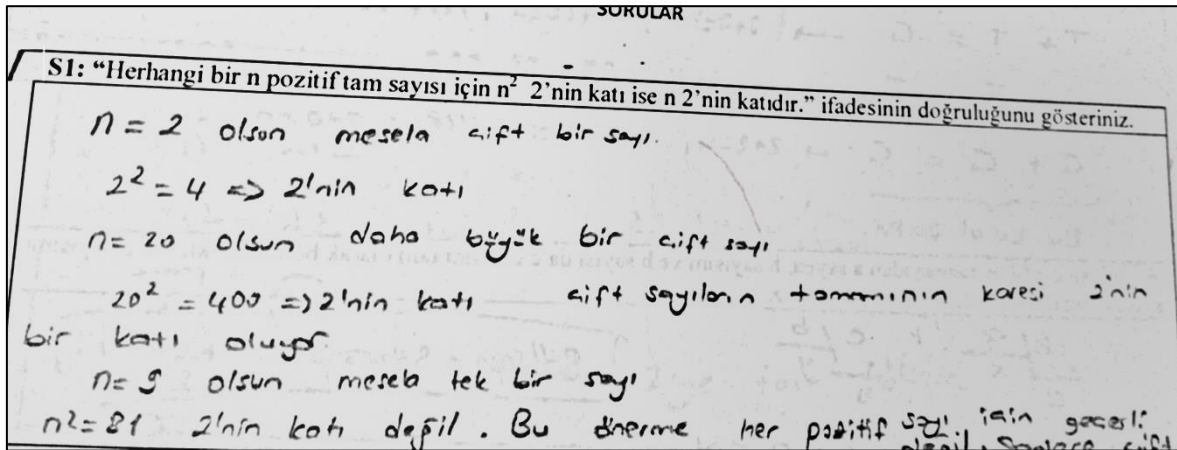 SORULAR
S1: “Herhangi bir n pozitif tam sayısı için n² 2’nin katı ise n 2’nin katıdır.” ifadesinin doğruluğunu gösteriniz.
n = 2 olsun mesela çift bir sayı.
2² = 4 => 2'nin katı
n = 20 olsun daha büyük bir çift sayı
20² = 400 => 2'nin katı çift sayıların tamamının karesi 2'nin
bir katı oluyor.
n = 9 olsun mesela tek bir sayı
n² = 81 2'nin katı değil. Bu önerme her pozitif sayı için geçerli
değil. Sadece çift